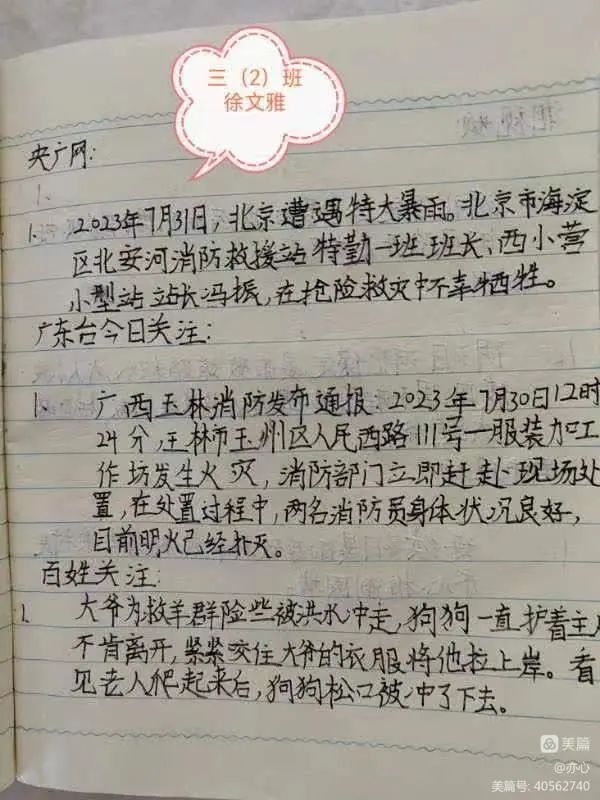 三（2）班
徐文雅
央广网：
1.
1. 2023年7月31日，北京遭遇特大暴雨。北京市海淀
区北安河消防救援站特勤一班班长、西小营
小型站站长冯振，在抢险救灾中不幸牺牲。
广东台今日关注：
1. 广西玉林消防发布通报：2023年7月30日12时
24分，玉林市玉州区人民西路111号一服装加工
作坊发生火灾，消防部门立即赶赴现场处
置，在处置过程中，两名消防员身体状况良好，
目前明火已经扑灭。
百姓关注：
1. 大爷为救羊群险些被洪水冲走，狗狗一直护着主
不肯离开，紧紧咬住大爷的衣服将他拉上岸。看
见老人爬起来后，狗狗松口被冲了下去。
美篇
@亦心
美篇号：40562740